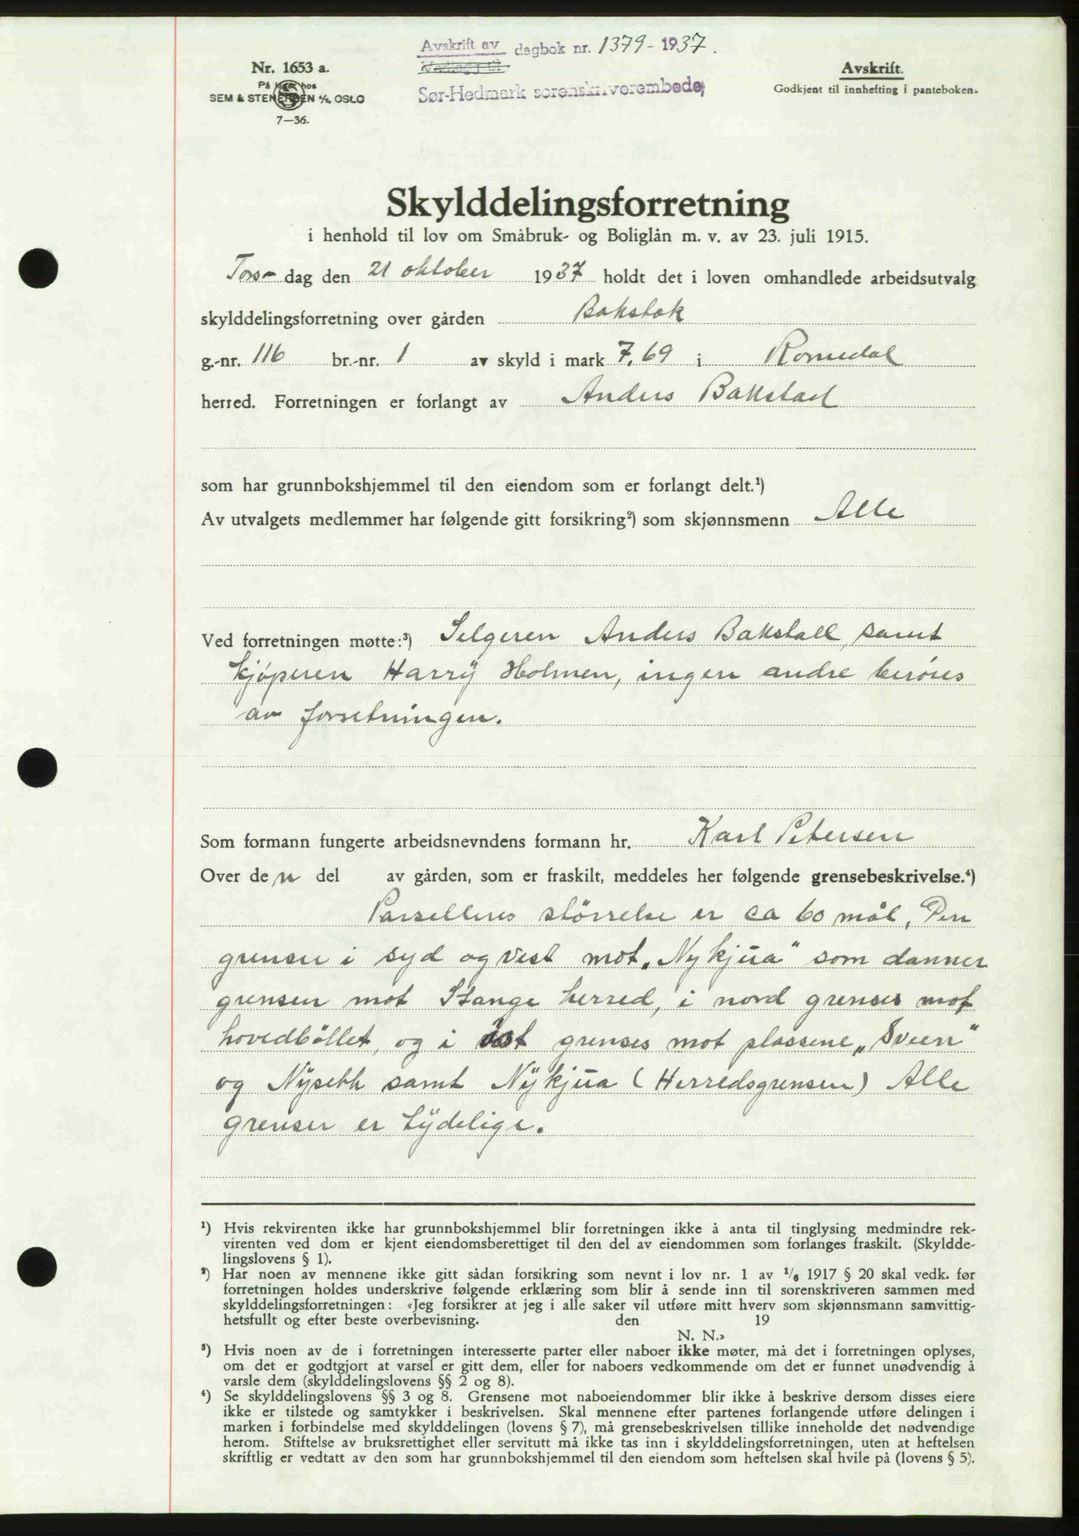 Avskrift av dagbok nr. 1379-1937.
Vedlegg til
Sør-Hedmark sorenskriverembede
Nr. 1653 a.
På lager hos
SEM & STENERSEN A/S, OSLO
7—36.
Avskrift.
Godkjent til innhefting i panteboken.
Skylddelingsforretning
i henhold til lov om Småbruk- og Boliglån m. v. av 23. juli 1915.
Tors- dag den 21 oktober 1937 holdt det i loven omhandlede arbeidsutvalg
skylddelingsforretning over gården Bakstak
g.-nr. 116 br.-nr. 1 av skyld i mark 7,69 i Romedal
herred. Forretningen er forlangt av Anders Bakstad
som har grunnbokshjemmel til den eiendom som er forlangt delt.¹)
Av utvalgets medlemmer har følgende gitt forsikring²) som skjønnsmenn Alle
Ved forretningen møtte:³) Selgeren Anders Bakstad, samt
kjøperen Harry Holmen, ingen andre berøres
av forretningen.
Som formann fungerte arbeidsnevndens formann hr. Karl Petersen
Over de/n del av gården, som er fraskilt, meddeles her følgende grensebeskrivelse.⁴)
Parsellens størrelse er ca 60 mål, Den
grenser i syd og vest mot „Nykjua" som danner
grensen mot Stange herred, i nord grenses mot
hovedbøllet, og i øst grenses mot plassene „Sveen"
og Nyseth samt Nykjua (Herredsgrensen) Alle
grenser er tydelige.
¹) Hvis rekvirenten ikke har grunnbokshjemmel blir forretningen ikke å anta til tinglysing medmindre rek-
virenten ved dom er kjent eiendomsberettiget til den del av eiendommen som forlanges fraskilt. (Skyldde-
lingslovens § 1).
²) Har noen av mennene ikke gitt sådan forsikring som nevnt i lov nr. 1 av ¹/₆ 1917 § 20 skal vedk. før
forretningen holdes underskrive følgende erklæring som blir å sende inn til sorenskriveren sammen med
skylddelingsforretningen: «Jeg forsikrer at jeg i alle saker vil utføre mitt hverv som skjønnsmann samvittig-
hetsfullt og efter beste overbevisning. den 19
N. N.»
³) Hvis noen av de i forretningen interesserte parter eller naboer ikke møter, må det i forretningen oplyses,
om det er godtgjort at varsel er gitt dem, eller for naboers vedkommende om det er funnet unødvendig å
varsle dem (skylddelingslovens §§ 2 og 8).
⁴) Se skylddelingslovens §§ 3 og 8. Grensene mot naboeiendommer blir ikke å beskrive dersom disses eiere
ikke er tilstede og samtykker i beskrivelsen. Skal mennene efter partenes forlangende utføre delingen i
marken i forbindelse med skylddelingen (lovens § 7), må grensebeskrivelsen tillike inneholde det nødvendige
herom. Stiftelse av bruksrettighet eller servitutt må ikke tas inn i skylddelingsforretningen, uten at heftelsen
skriftlig er vedtatt av den som har grunnbokshjemmel til den eiendom som heftelsen skal hvile på (lovens § 5).